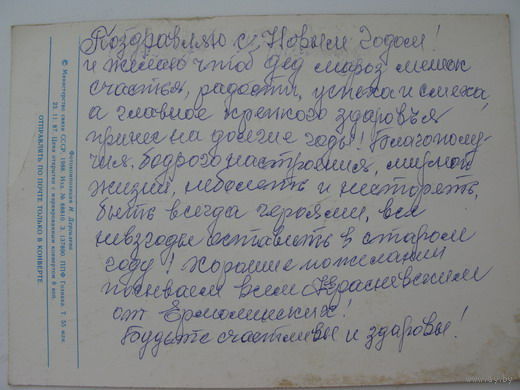 Поздравляю с Новым Годом!
и желаю чтоб дед мороз мешок
счастья, радости, успеха и смеха,
а главное крепкого здоровья
принес на долгие годы! Благополу-
чия, бодрого настроения, мирной
жизни, неболеть и нестореть,
быть всегда героями, все
невзгоды оставить в старом
году! Хорошие пожелания
посылаем всем
от
Будьте счастливы и здоровы!
© Министерство связи СССР, 1988. Изд. № 88810 З.
23.11.87. Цена открытки с маркированным конвертом 8 коп.
ОТПРАВЛЯТЬ ПО ПОЧТЕ ТОЛЬКО В КОНВЕРТЕ